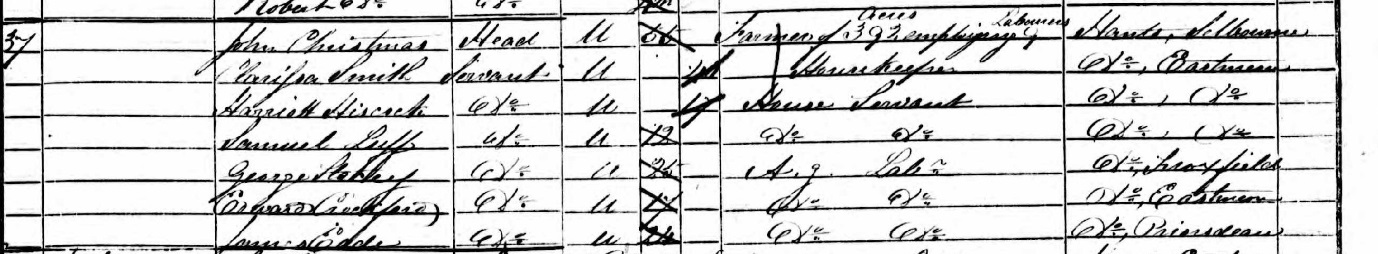 Robert Do Do
37 John Christmas Head U 56 Farmer of 392 Acres employing 9 Labourers Hants, Selbourne
Clarissa Smith Servant U Housekeeper Do, Eastmeon
Harriett Hiscock Do U 17 House Servant Do, Do
Samuel Luff Do U 12 Do Do Do, Do
George Do U 25 Ag. Labr Do, Froxfield
Edward Do U 17 Do Do Do, Eastmeon
James Eade Do U 24 Do Do Do, Priorsdean